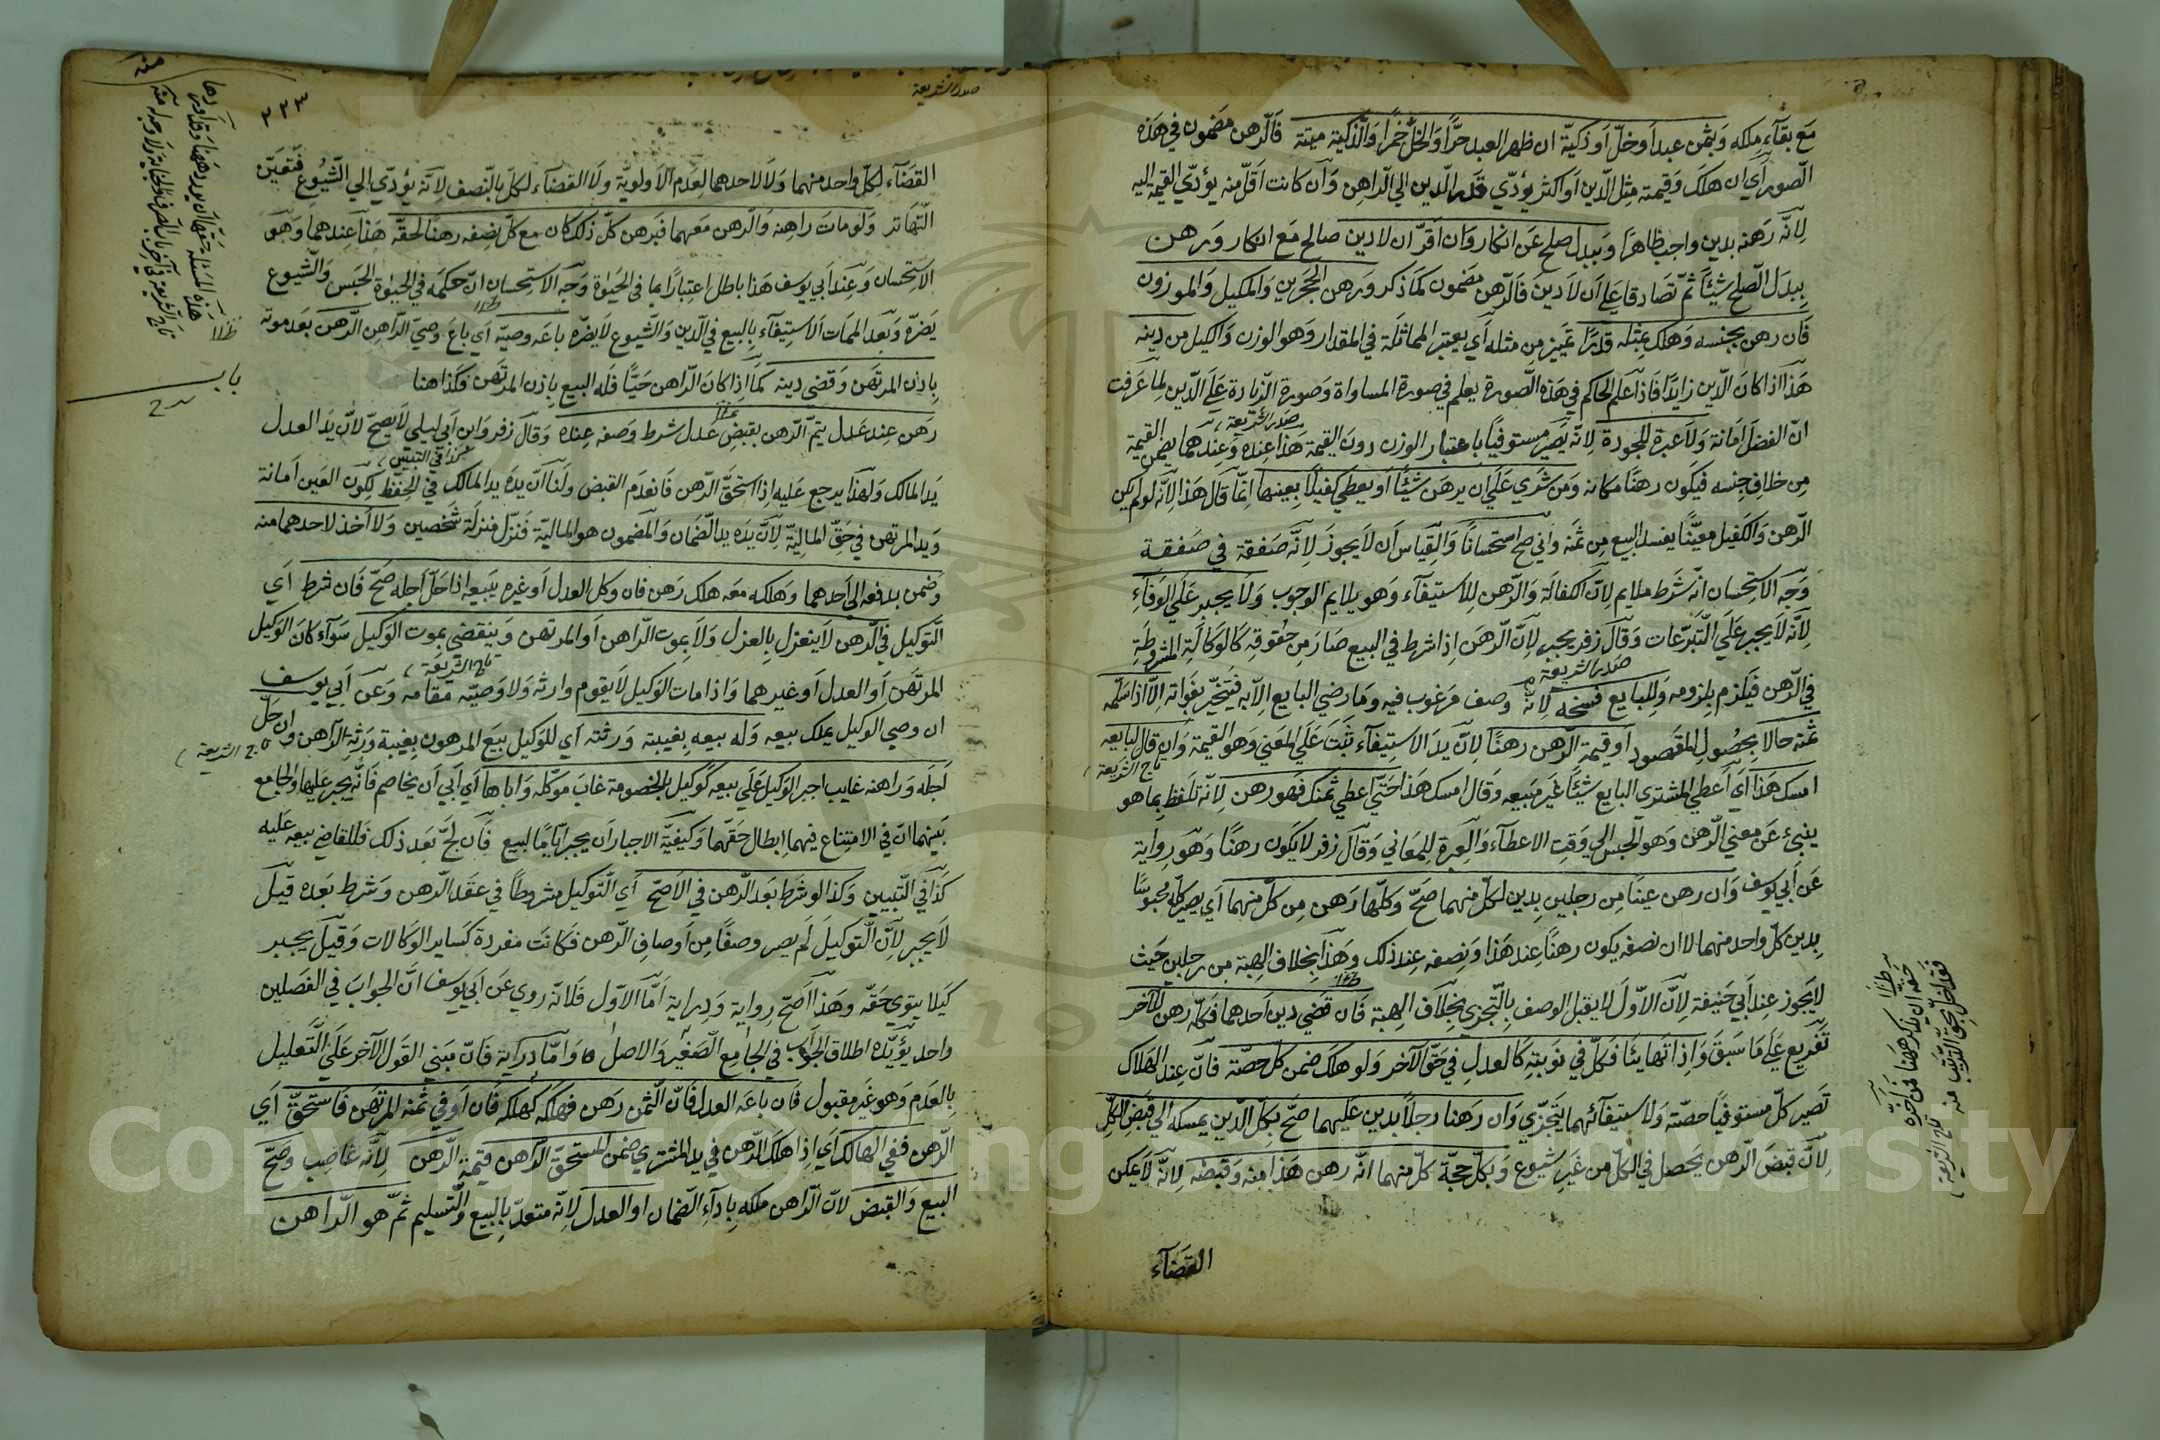 مَع بقآء مِلكه وَبثمن عبد اَو خلّ اَو ذكيّة ان ظهر العبد حرًّا وَالخلّ خمرًا وَالذّكية ميتة فَالرّهن مَضمون في هَذه
الصّور اَي ان هلكَ وَقيمته مِثل الدّين اَو اكثر يؤدّي قَدر الدّين الي الرّاهن وَان كانت اَقلّ منه يؤدّي القيمة اليه
لِانّه رَهنه بدين واجب ظاهرًا وَببدل صلح عَن انكار وَان اقرّ ان لا دين صالح مَع انكار وَرهن
بِبدل الصّلح شيئًا ثمّ تصَادقا عَلي اَن لا دَينَ فَالرّهن مَضمون كمَا ذكر وَرهن الحَجَرين وَالمكيل وَالموزون
فَان رهن بجنسه وَهلك بمثله قدرًا تميّز مِن مثله اَي يعتبر المماثلة في المقدار وَهو الوزن وَالكيل من دينه
هَذا اذا كانَ الدّين زايدًا فَاذا علم الحاكم في هَذه الصّورة يعلم في صورة المساواة وَصورة الزّيادة عَلي الدّين لِما عَرفت
انّ الفضل اَمَانة وَلا عبرة للجودة لِانّه يَصير مستوفيًا باعتبار الوزن دونَ القيمة هَذا عنده وَعِندهما يضمن القيمة
صَدر الشّريعة
مِن خلاف جنسه فيَكون رهنًا مكانه وَمَن شري عَلي ان يرهَن شيئًا اَو يعطي كفيلاً بِعينهما انّما قال هَذا لِانّه لو لم يكن
الرّهن وَالكفيل معيّنًا يفسد البيع مِن ثمَنه وَابي صح استحسانًا وَالقياس اَن لا يجوز لِانّه صَفقة في صَفقة
وَجه الاستحسان انّه شَرط ملايم لِانّ الكفالة وَالرّهن لِلاستيفآء وَهو يلايم الوجوب وَلا يجبر عَلي الوَفآء
لِانّه لا يجبر عَلي التّبرّعات وَقال زفر يجبر لِانّ الرّهنَ اذا شرط في البيع صَار مِن حقوقه كالوكالة المشروطة
في الرّهن فيَلزم بلزومه وَلِلبايع فسخه لِانّه وصف مَرغوب فيه وَمَا رضي البايع الّا به فيَتخيّر بفَواته الّا اذا سَلّمه
صَدر الشّريعة
ثمنه حَالا بِحصُول المقصود اَو قيمة الرّهن رهنًا لِانّ يد الاستيفآء ثبت عَلي المَعني وَهو القيمة وَان قال لبايعه
تاج الشّريعة
امسك هَذا اَي اَعطي المشتري البايع شيئًا غَير مَبيعه وَقال امسك هَذا حَتّي اعطي ثمنك فَهو رهن لِانّه تلفظ بما هو
ينبئ عَن معني الرّهن وَهو الحَبس الي وَقت الاعطآء وَالعِبرة لِلمَعاني وَقال زفر لا يَكون رهنًا وَهو رِواية
عَن اَبي يوسف وَان رهن عينًا مِن رجلين بِدين لكلّ منهما صَحّ وَكلّها رَهن مِن كلّ منهما اَي يصير كلّه محبوسًا
بِدين كلّ واحد منهما لا ان نصفه يكون رهنًا عِند هَذا وَنصفه عِند ذلك وَهَذا بِخلاف الهبة من رجلين حَيث
لا يَجوز عِند اَبي حَنيفة لِانّ الاوّل لا يقبل الوصف بالتّجزي بِخلاف الهبة فَان قضي دين اَحدهما فكلّه رهن للآخر
تَفريع عَلي مَا سَبق وَاذا تهايئا فكلّ في نوبته كالعدل في حَقّ الآخر وَلو هلك ضمن كلّ حصّته فَانّ عِند الهلاك
تَصير كلّ مستوفيًا حصّته وَلاستيفآئهما يتجزّي وَان رهنا رجلاً بدين عَليهما صَحّ بكلّ الدّين يمسكه الي قَبض الكلّ
لِانّ قبضَ الرّهن يَحصل في الكلّ من غَير شيوع وَبكلّ حجّة كلّ منهما انّه رهن هَذا منه وَقبضه لِانّه لا يمكن
القضَآء
حَقّه ان يذكر هَهنا فمَن اَخّره
فقد اَخلّ بحقّ التّرتيب منه
تاج الشّريعة
صدر الشّريعة
٢٣٣
القضَآء لِكلّ وَاحد منهما وَلا لاحدهما لعدم الاولويّة وَلا القضآء لكلّ بالنّصف لِانّه يؤدّي الي الشّيوع فَتعيّن
التّهاتر وَلو مات راهنه وَالرّهن مَعهما فبَرهن كلّ ذلك كان مع كلّ نِصفه رهنًا لحقّه هَذا عِندهما وَهو
الاستحسان وَعِند اَبي يوسف هَذا باطل اعتبارًا بما في الحَيوة وَجه الاستحسان انّ حكمه في الحيوة الحَبس وَالشّيوع
يَضرّه وَبَعد الممَات الاستيفآء بالبيع في الدّين وَالشّيوع لا يضرّه باعَه وصيّه اَي باعَ وَصي الرّاهن الرّهن بَعد موته
بِاذن المرتهَن وَقضي دينه كمَا اذا كانَ الرّاهن حيًّا فَله البيع بِاذن المرتهن فكذا هنا
باب
رَهن عِند عَدل يتمّ الرّهن بقبض عَدل شرط وَضعه عِنده وَقال زفر وَابن اَبي ليلي لا يَصحّ لانّ يد العدل
كذا في التبيين
يَد المالك وَلهذا يرجع عَليه اذا استحقّ الرّهن فانعَدم القبض وَلنا انّ يدَه يد المالك في الحفظ لكون العَين اَمانة
وَيد المرتهن في حَقّ الماليّة لِانّ يده يد الضّمان وَالمضمون هو الماليّة فَنزّل مَنزلة شَخصين وَلا اَخذ لاحدهما منه
وَضمن بدفعه الي اَحدهما وَهلكه معَه هلك رَهن فان وكل العدل اَو غيره ببَيعه اذا حَلّ اجله صَحّ فَان شرط اَي
التّوكيل في الرّهن لا ينعزل بِالعزل وَلا بموت الرّاهن اَو المرتهن وَينقضي بموت الوكيل سَوآء كانَ الوَكيل
المرتهَن اَو العدل اَو غيرهما وَاذا مات الوَكيل لا يَقوم وارثه وَلا وَصيّه مَقامه وَعَن اَبي يوسف
تاج الشّريعَة
ان وصي الوكيل يملك بيعه وَله بيعه بِغيبته وَرثته اَي للوَكيل بيع المرهون بِغيبة وَرثة الرّاهن وَان حَلّ
تاج الشّريعة
اَجله وَراهنه غايب اجبر الوَكيل عَلي بيعه كَوكيل بالخصومة غابَ مَوكّله وَاباها اَي اَبي اَن يخاصم فَانّه يجبر عَليها وَالجامع
بَينهما انّ في الامتناع فيهما اِبطال حَقّهما وَكيفيّة الاجبار اَن يحبس ايّامًا لبيع فَان لجّ بَعد ذلك فللقاضي بيعه عَليه
كذَا في التّبيين وَكذا لو شرط بَعد الرّهن في الاصَحّ اَي التّوكيل مشروطًا في عقد الرّهن وَشرط بَعده قيل
لا يَجبر لِانّ التّوكيل لَم يصر وصفًا مِن اَوصاف الرّهن فكانت مفردة كسَاير الوكالات وَقيل يجبر
كَيلا يتوي حَقّه وَهَذا اَصحّ رِواية وَدِراية اَمّا الاوّل فلانّه روي عَن اَبي يوسف انّ الجوابَ في الفَصلين
واحد يؤيّده اطلاق الجَواب في الجامع الصّغير وَالاصل وَامّا دِراية فَانّ مَبني القَول الآخر عَلي التّعليل
بِالعدَم وَهو غَير مقبول فَان باعَه العدل فانّ الثّمن رَهن فهلكه كهلكه فَان اَوفي ثمنه المرتهن فَاستحقّ اَي
الرّهن ففي الهالك اَي اذا هلك الرّهن في يد المشتري ضمن المستحقّ الرّاهن قيمة الرّهن لِانّه غاصِب وَصَحّ
البيع وَالقبض لانّ الرّاهن ملكه بِادآء الضّمان او العدل لِانّه متعدّ بِالبيع وَالتّسليم ثمّ هو الرّاهن
Copyright © King University